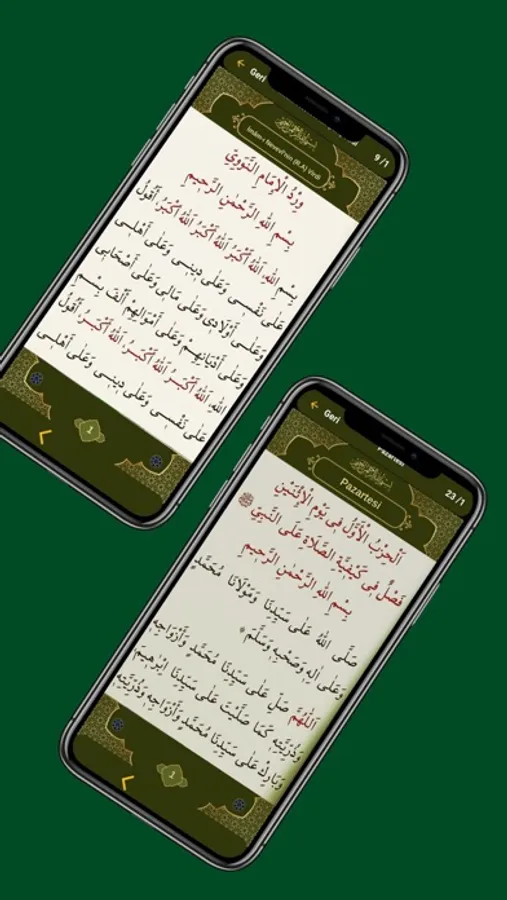 Geri
9 /1
İmâm-ı Nevevî'nin (R.A) Virdi
وِرْدُ الْاِمَامِ النَّوَوِيِّ
بِسْمِ اللهِ الرَّحْمٰنِ الرَّحِيمِ
بِسْمِ اللهِ، اَللهُ اَكْبَرُ اَللهُ اَكْبَرُ اَللهُ اَكْبَرُ، اَقُولُ
عَلٰى نَفْسِى وَعَلٰى دِينِى وَعَلٰى اَهْلِى
وَعَلٰى اَوْلَادِى وَعَلٰى مَالِى وَعَلٰى اَصْحَابِى
وَعَلٰى اَدْيَانِهِمْ وَعَلٰى اَمْوَالِهِمْ اَلْفَ بِسْمِ
اللهِ، اَللهُ اَكْبَرُ اَللهُ اَكْبَرُ اَللهُ اَكْبَرُ، اَقُولُ
عَلٰى نَفْسِى وَعَلٰى دِينِى وَعَلٰى اَهْلِى
1
Geri
Pazartesi
23 /1
Pazartesi
اَلْحِزْبُ الْاَوَّلُ فِى يَوْمِ الْاِثْنَيْنِ
فَصْلٌ فِى كَيْفِيَّةِ الصَّلَاةِ عَلَى النَّبِيِّ ﷺ
بِسْمِ اللهِ الرَّحْمٰنِ الرَّحِيمِ
صَلَّى اللهُ عَلٰى سَيِّدِنَا وَمَوْلَانَا مُحَمَّدٍ
وَعَلٰى اٰلِهِ وَصَحْبِهِ وَسَلَّمَ
اَللّٰهُمَّ صَلِّ عَلٰى سَيِّدِنَا مُحَمَّدٍ وَاَزْوَاجِهِ
وَذُرِّيَّتِهِ كَمَا صَلَّيْتَ عَلٰى سَيِّدِنَا اِبْرٰهِيمَ
وَبَارِكْ عَلٰى سَيِّدِنَا مُحَمَّدٍ وَاَزْوَاجِهِ وَذُرِّيَّتِهِ
1